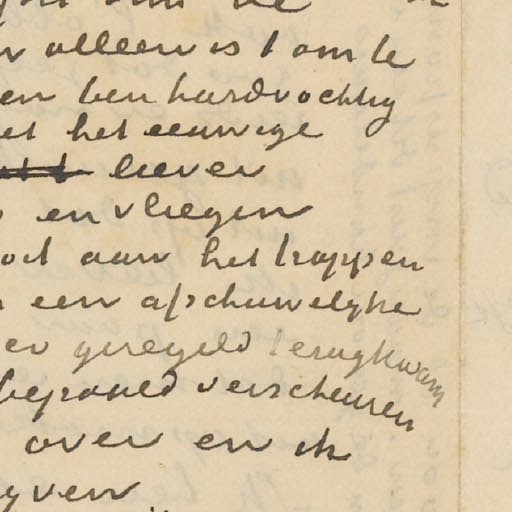 alleen is 1 om te
en ben hardvochtig
het eeuwige
liever
en vliegen
aan het trappen
een afschuwelyke
geregeld terugkwam
bepaald verscheuren
over en ik